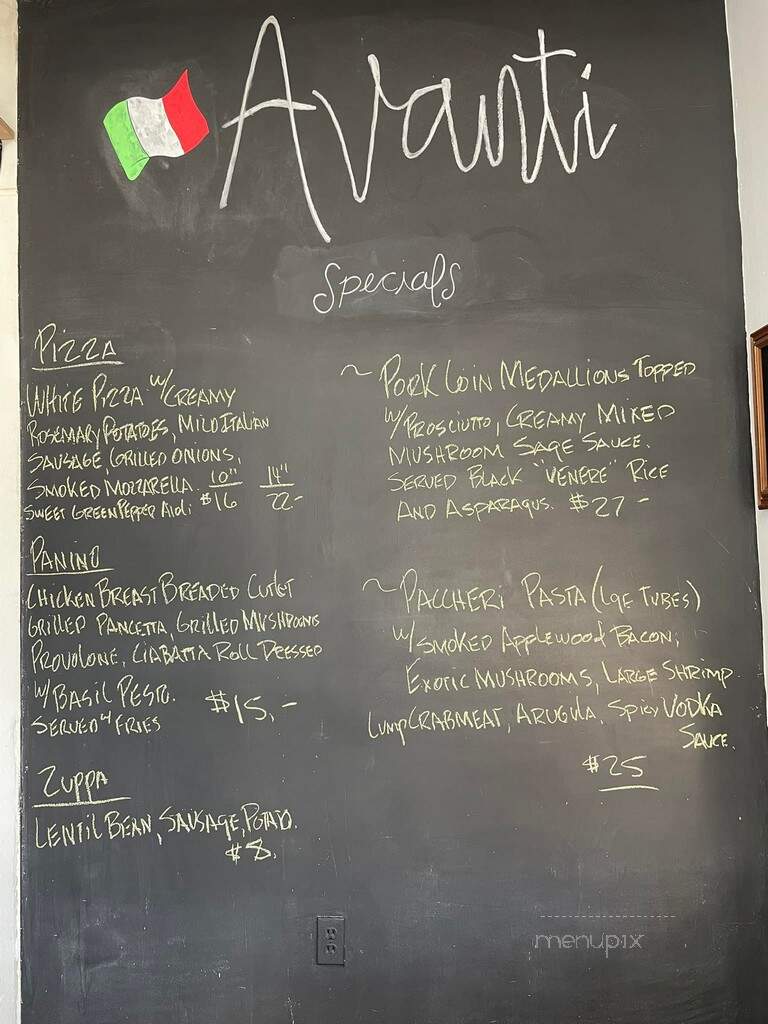 Avanti
Specials
Pizza
White Pizza w/ Creamy
Rosemary Potatoes, Mild Italian
Sausage, Grilled Onions,
Smoked Mozzarella. 10" 14"
Sweet Green Pepper Aioli $16 22-
Panino
Chicken Breast Breaded Cutlet
Grilled Pancetta, Grilled Mushrooms
Provolone, Ciabatta Roll Dressed
w/ Basil Pesto.
Served w/ Fries $15.-
Zuppa
Lentil Bean, Sausage, Potato.
$8.
~ Pork Loin Medallions Topped
w/ Prosciutto, Creamy Mixed
Mushroom Sage Sauce.
Served Black "Venere" Rice
And Asparagus. $27-
~ Paccheri Pasta (Lge Tubes)
w/ Smoked Applewood Bacon,
Exotic Mushrooms, Large Shrimp
Lump Crabmeat, Arugula, Spicy Vodka
Sauce.
$25
menupix